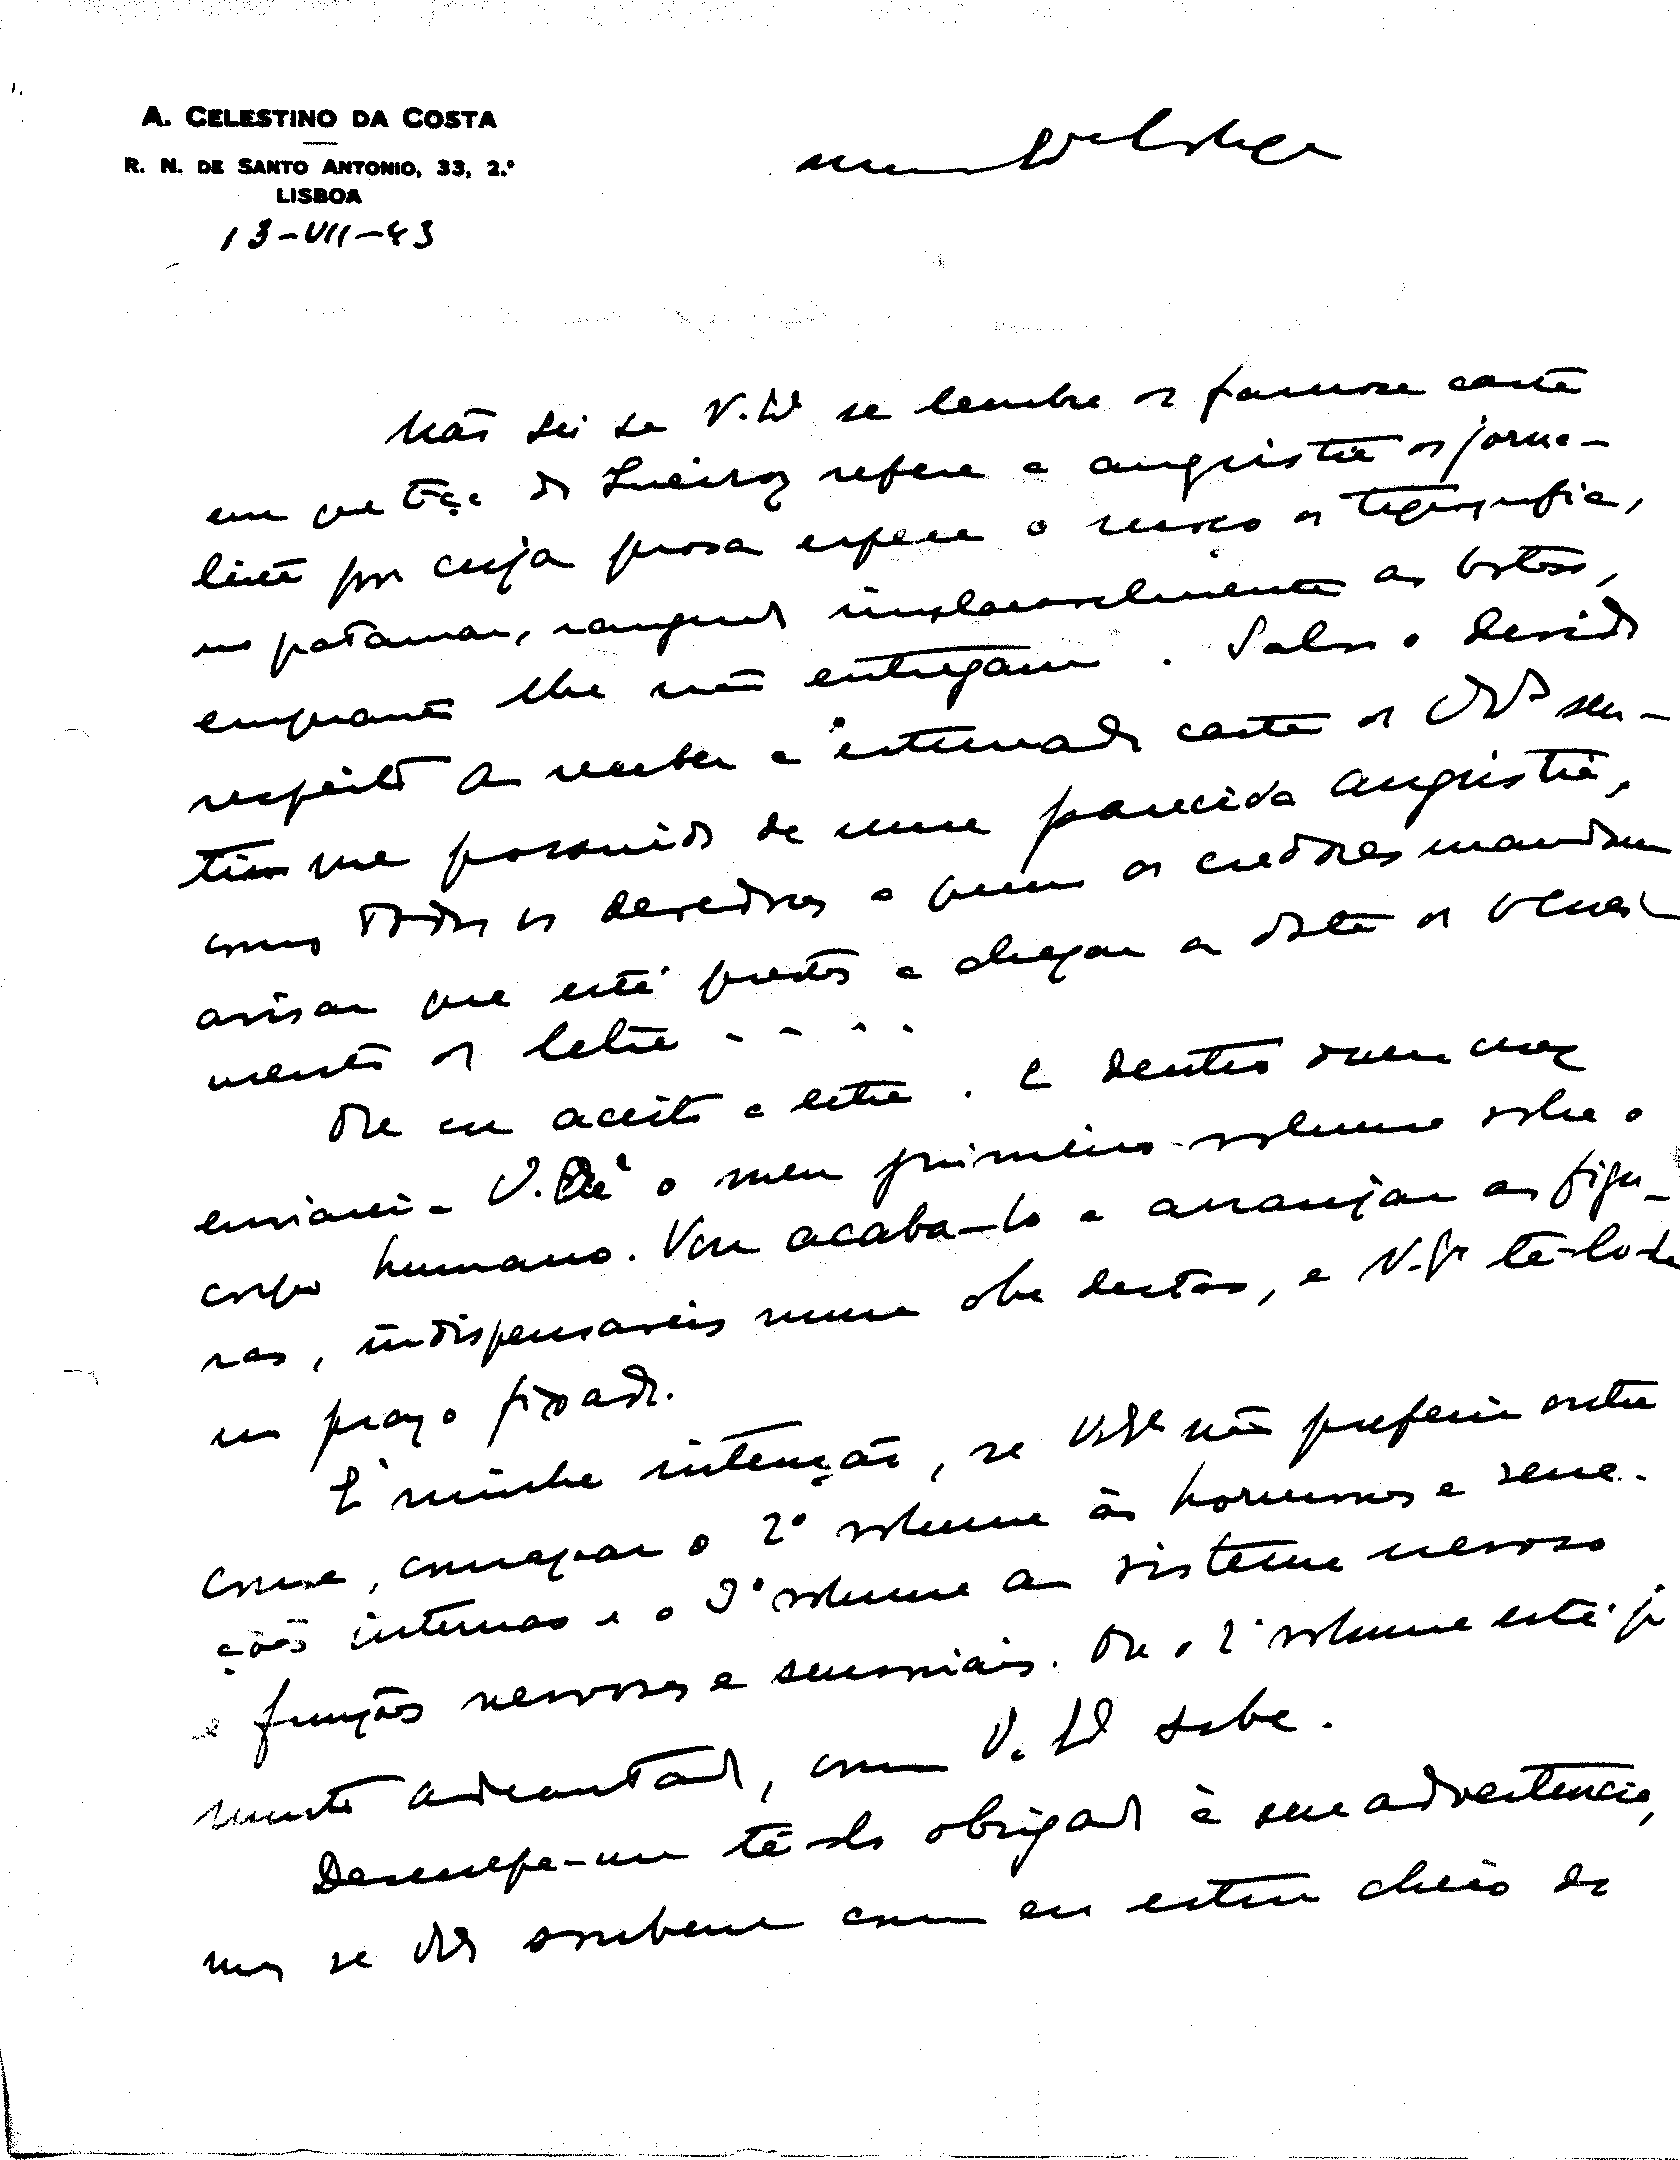 A. CELESTINO DA COSTA
R. N. DE SANTO ANTONIO, 33, 2.º
LISBOA
13-VII-43
meu
Não sei se V. Exª se lembra da famosa carta
em que Eça de Queiroz refere a angústia do jorna-
lista por cuja prosa espera o moço da tipografia,
no patamar, rangendo implacavelmente as botas,
enquanto lha não entregam. Salvo o devido
respeito ao receber a estimada carta de V. Exª sen-
ti-me possuido de uma parecida angústia,
como todos os devedores a quem os credores mandam
avisar que está prestes a chegar a data do venci-
mento da letra . . . .
Ora eu aceito a letra. E dentro dum mez
enviarei a V. Exª o meu primeiro volume sobre o
corpo humano. Vou acaba-lo e arranjar as figu-
ras, indispensaveis numa obra destas, e V. Exª tê-lo-á
no prazo fixado.
É minha intenção, se V. Exª não preferir outra
cousa, consagrar o 2º volume às hormonas e secre-
ções internas e o 3º volume ao sistema nervoso
e funções nervosas e sensoriais. Ora o 2º volume está já
muito adeantado, como V. Exª sabe.
Desculpe-me tê-lo obrigado à sua advertencia,
mas se V. Exª soubesse como eu estou cheio de